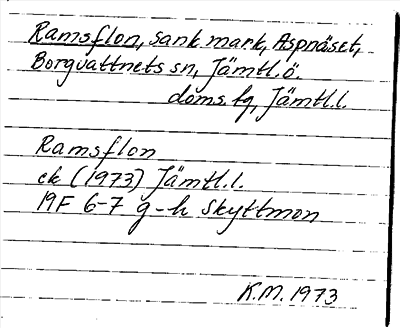 Ramsflon, sank mark, Aspnäset,
Borgvattnets sn, Jämtl. ö.
doms. fg, Jämtl. l.
Ramsflon
ek (1973) Jämtl. l.
19F 6-7 g-h Skyttmon
K.M. 1973